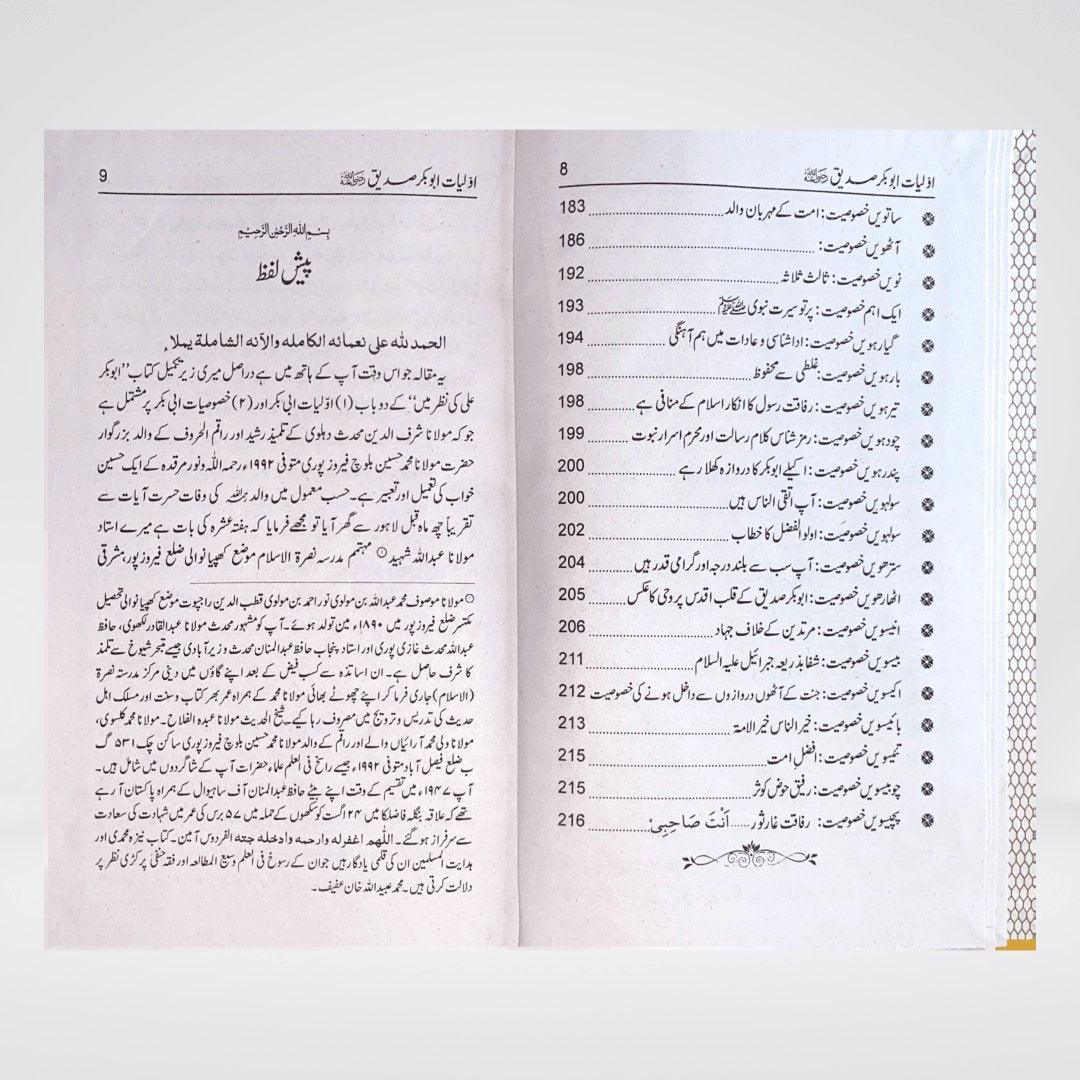 اوّلیات ابوبکر صدیق رضی اللہ عنہ 8
ساتویں خصوصیت: امت کے مہربان والد 183
آٹھویں خصوصیت: 186
نویں خصوصیت: ثالث ثلاثہ 192
ایک اہم خصوصیت: پرتو سیرت نبوی ﷺ 193
گیارہویں خصوصیت: اداشناسی و عادات میں ہم آہنگی 194
بارہویں خصوصیت: غلطی سے محفوظ 198
تیرہویں خصوصیت: رفاقت رسول کا انکار اسلام کے منافی ہے 198
چودہویں خصوصیت: رمز شناس کلام رسالت اور محرم اسرار نبوت 199
پندرہویں خصوصیت: اکیلے ابوبکر کا دروازہ کھلا رہے 200
سولہویں خصوصیت: آپ اتقی الناس ہیں 200
سولہویں خصوصیت: اولو الفضل کا خطاب 202
سترھویں خصوصیت: آپ سب سے بلند درجہ اور گرامی قدر ہیں 204
اٹھارھویں خصوصیت: ابوبکر صدیق کے قلب اقدس پر وحی کا عکس 205
انیسویں خصوصیت: مرتدین کے خلاف جہاد 206
بیسویں خصوصیت: شفا بذریعہ جبرائیل علیہ السلام 211
اکیسویں خصوصیت: جنت کے آٹھوں دروازوں سے داخل ہونے کی خصوصیت 212
بائیسویں خصوصیت: خیر الناس خیر الامۃ 213
تئیسویں خصوصیت: افضل امت 215
چوبیسویں خصوصیت: رفیق حوض کوثر 215
پچیسویں خصوصیت: رفاقت غار ثور ..... اَنْتَ صَاحِبِیْ 216
اوّلیات ابوبکر صدیق رضی اللہ عنہ 9
بِسْمِ اللهِ الرَّحْمٰنِ الرَّحِیْمِ
پیش لفظ
الحمد لله علی نعمائه الکامله والآئه الشاملة یملاء
یہ مقالہ جو اس وقت آپ کے ہاتھ میں ہے دراصل میری زیر تکمیل کتاب ”ابوبکر
علی کی نظر میں“ کے دو باب (۱) اوّلیات ابی بکر اور (۲) خصوصیات ابی بکر پر مشتمل ہے
جو کہ مولانا شرف الدین محدث دہلوی کے تلمیذ رشید اور راقم الحروف کے والد بزرگوار
حضرت مولانا محمد حسین بلوچ فیروز پوری متوفی ۱۹۹۲ء رحمہ اللہ ونور مرقدہ کے ایک حسین
خواب کی تعمیل اور تعبیر ہے۔ حسب معمول میں والد رحمہ اللہ کی وفات حسرت آیات سے
تقریباً چھ ماہ قبل لاہور سے گھر آیا تو مجھے فرمایا کہ ہفتہ عشرہ کی بات ہے میرے استاد
مولانا عبد اللہ شہید ① مہتمم مدرسہ نصرۃ الاسلام موضع کھپیانوالی ضلع فیروز پور، مشرقی
① مولانا موصوف محمد عبد اللہ بن مولوی نور احمد بن مولوی قطب الدین راجپوت موضع کھپیانوالی تحصیل
مکتسر ضلع فیروز پور میں ۱۸۹۰ء مین تولد ہوئے۔ آپ کو مشہور محدث مولانا عبد القادر لکھوی، حافظ
عبد اللہ محدث غازی پوری اور استاد پنجاب حافظ عبد المنان محدث وزیر آبادی جیسے متبحر شیوخ سے تلمذ
کا شرف حاصل ہے۔ ان اساتذہ سے کسب فیض کے بعد اپنے گاؤں میں دینی مرکز مدرسہ نصرۃ
(الاسلام) جاری فرما کر اپنے چھوٹے بھائی مولانا محمد کے ہمراہ عمر بھر کتاب وسنت اور مسلک اہل
حدیث کی تدریس و ترویج میں مصروف رہا کیے۔ شیخ الحدیث مولانا عبدہ الفلاح۔ مولانا محمد کلسوی،
مولانا ولی محمد آرائیاں والے اور راقم کے والد مولانا محمد حسین بلوچ فیروز پوری ساکن چک ۵۳۱ گ
ب ضلع فیصل آباد متوفی ۱۹۹۲ء جیسے راسخ فی العلم علماء حضرات آپ کے شاگردوں میں شامل ہیں۔
آپ ۱۹۴۷ء میں تقسیم کے وقت اپنے بیٹے حافظ عبد المنان آف ساہیوال کے ہمراہ پاکستان آ رہے
تھے کہ علاقہ بنگلہ فاضلکا میں ۲۴ اگست کو سکھوں کے حملہ میں ۵۷ برس کی عمر میں شہادت کی سعادت
سے سرفراز ہو گئے۔ اللّٰھم اغفرلہ وارحمه وادخله جنته الفردوس آمین۔ کتاب نیزہ محمدی اور
ہدایت المسلمین ان کی قلمی یادگار ہیں جو ان کے رسوخ فی العلم وسیع المطالعہ اور فقہ حنفی پر کڑی نظر پر
دلالت کرتی ہیں۔ محمد عبید اللہ خان عفیف۔